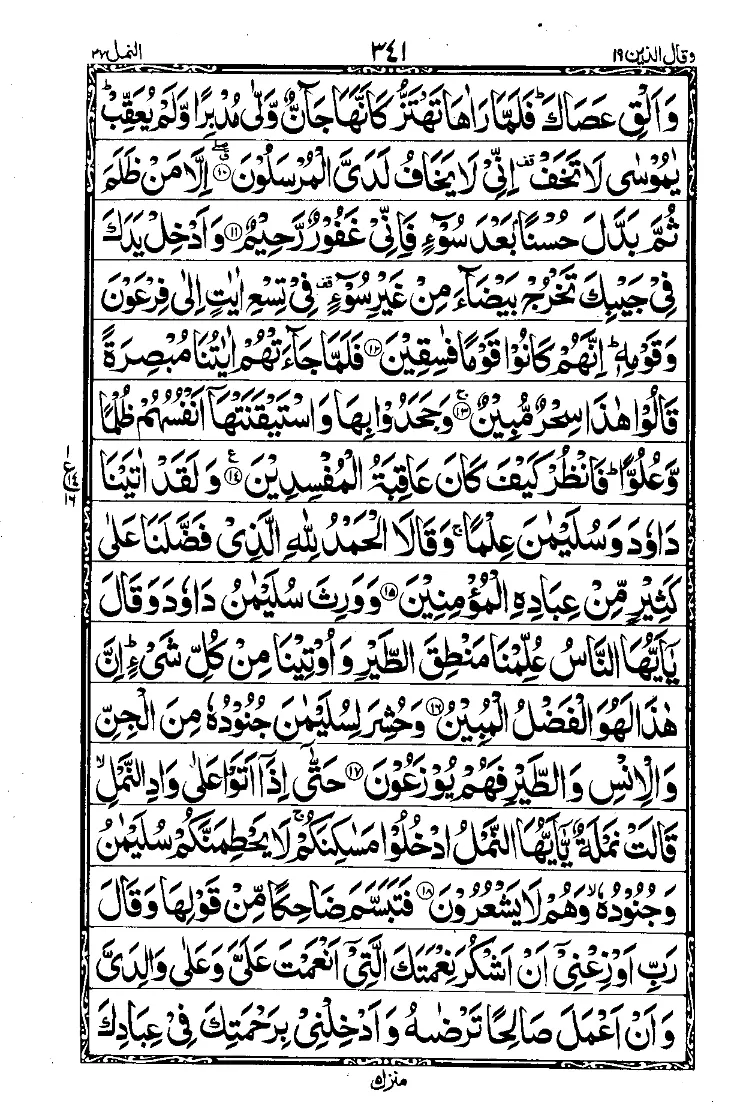 وقال الذین ۱۹
۳۴۱
النمل ۲۷
وَاَلۡقِ عَصَاكَ ؕ فَلَمَّا رَاٰهَا تَهۡتَزُّ كَاَنَّهَا جَآنٌّ وَّلّٰى مُدۡبِرًا وَّلَمۡ يُعَقِّبۡ ؕ
يٰمُوۡسٰى لَا تَخَفۡ ࣞ اِنِّىۡ لَا يَخَافُ لَدَىَّ الۡمُرۡسَلُوۡنَ ۱۰ اِلَّا مَنۡ ظَلَمَ
ثُمَّ بَدَّلَ حُسۡنًۢا بَعۡدَ سُوۡٓءٍ فَاِنِّىۡ غَفُوۡرٌ رَّحِيۡمٌ ۱۱ وَاَدۡخِلۡ يَدَكَ
فِىۡ جَيۡبِكَ تَخۡرُجۡ بَيۡضَآءَ مِنۡ غَيۡرِ سُوۡٓءٍ ࣞ فِىۡ تِسۡعِ اٰيٰتٍ اِلٰى فِرۡعَوۡنَ
وَقَوۡمِهٖ ؕ اِنَّهُمۡ كَانُوۡا قَوۡمًا فٰسِقِيۡنَ ۱۲ فَلَمَّا جَآءَتۡهُمۡ اٰيٰتُنَا مُبۡصِرَةً
قَالُوۡا هٰذَا سِحۡرٌ مُّبِيۡنٌ ۚ ۱۳ وَجَحَدُوۡا بِهَا وَاسۡتَيۡقَنَتۡهَاۤ اَنۡفُسُهُمۡ ظُلۡمًا
وَّعُلُوًّا ؕ فَانْظُرۡ كَيۡفَ كَانَ عَاقِبَةُ الۡمُفۡسِدِيۡنَ ع ۱۴ وَلَقَدۡ اٰتَيۡنَا
۱ ع ۱۴ ۱۶
دَاوٗدَ وَسُلَيۡمٰنَ عِلۡمًا ۚ وَقَالَا الۡحَمۡدُ لِلّٰهِ الَّذِىۡ فَضَّلَنَا عَلٰى
كَثِيۡرٍ مِّنۡ عِبَادِهِ الۡمُؤۡمِنِيۡنَ ۱۵ وَوَرِثَ سُلَيۡمٰنُ دَاوٗدَ وَقَالَ
يٰۤاَيُّهَا النَّاسُ عُلِّمۡنَا مَنۡطِقَ الطَّيۡرِ وَاُوۡتِيۡنَا مِنۡ كُلِّ شَىۡءٍ ؕ اِنَّ
هٰذَا لَهُوَ الۡفَضۡلُ الۡمُبِيۡنُ ۱۶ وَحُشِرَ لِسُلَيۡمٰنَ جُنُوۡدُهٗ مِنَ الۡجِنِّ
وَالۡاِنۡسِ وَالطَّيۡرِ فَهُمۡ يُوۡزَعُوۡنَ ۱۷ حَتّٰٓى اِذَاۤ اَتَوۡا عَلٰى وَادِ النَّمۡلِ ۙ
قَالَتۡ نَمۡلَةٌ يّٰۤاَيُّهَا النَّمۡلُ ادۡخُلُوۡا مَسٰكِنَكُمۡ ۚ لَا يَحۡطِمَنَّكُمۡ سُلَيۡمٰنُ
وَجُنُوۡدُهٗ ۙ وَهُمۡ لَا يَشۡعُرُوۡنَ ۱۸ فَتَبَسَّمَ ضَاحِكًا مِّنۡ قَوۡلِهَا وَقَالَ
رَبِّ اَوۡزِعۡنِىۡۤ اَنۡ اَشۡكُرَ نِعۡمَتَكَ الَّتِىۡۤ اَنۡعَمۡتَ عَلَىَّ وَعَلٰى وَالِدَىَّ
وَاَنۡ اَعۡمَلَ صَالِحًا تَرۡضٰٮهُ وَاَدۡخِلۡنِىۡ بِرَحۡمَتِكَ فِىۡ عِبَادِكَ
منزل ۵